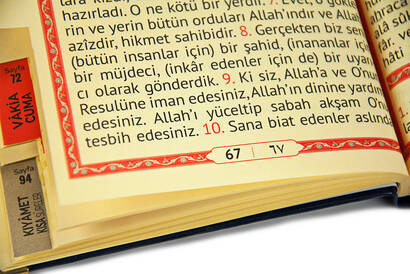 hazırladı. O ne kötü bir yerdir. 7. Evet, g
rin ve yerin bütün orduları Allah'ındır ve Allah
azîzdir, hikmet sahibidir. 8. Gerçekten biz sen
(bütün insanlar için) bir şahid, (inananlar için
bir müjdeci, (inkâr edenler için de) bir uyar
cı olarak gönderdik. 9. Ki siz, Allah'a ve O'nu
Resulüne iman edesiniz, Allah'ın dinine yardım
edesiniz. Allah'ı yüceltip sabah akşam O'n
tesbih edesiniz. 10. Sana biat edenler aslınd
67 | ٦٧
Sayfa
72
VÂKIA
CUMA
Sayfa
94
KIYÂMET
KISA SURELER